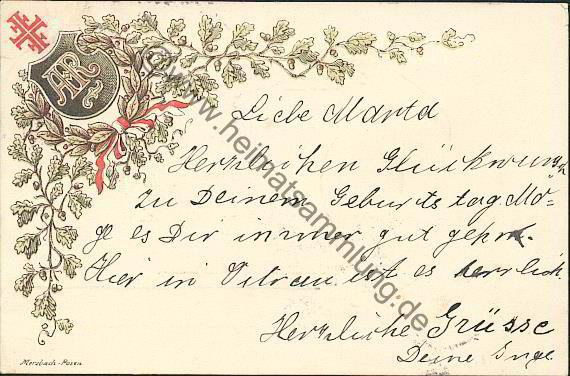 AR
Liebe Marta
Herzlichen Glückwunsch
zu Deinem Geburtstag. Mö-
ge es Dir immer gut gehn.
Hier in ist es herrlich
Herzliche Grüsse
Deine Inge
Mersbach-Posen
©www.heimatsammlung.de